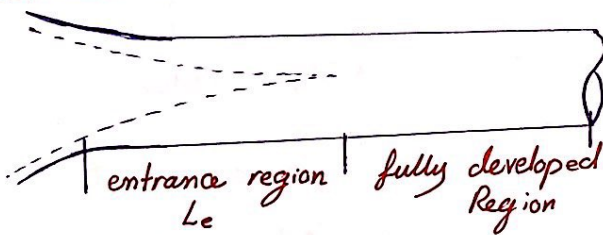 entrance region fully developed
Le Region